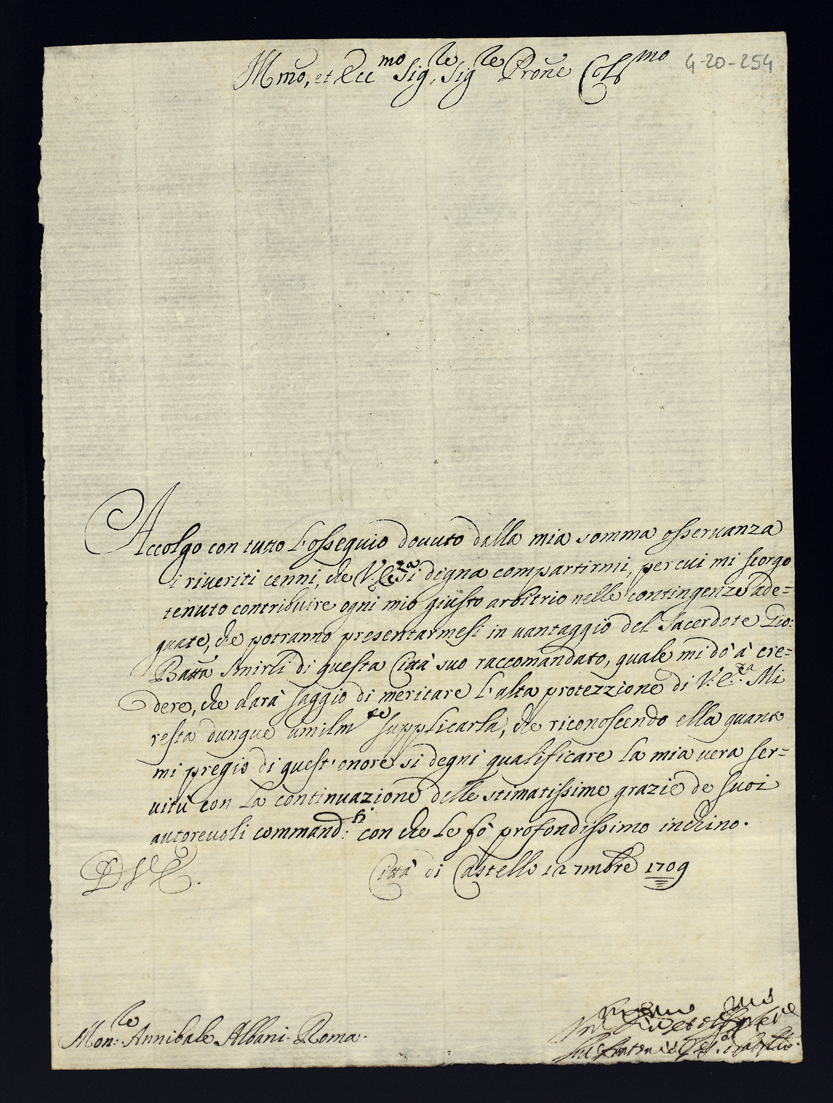 Ill.mo, et Ecc.mo Sig.re, Sig.re Prone Col.mo 4-20-254
Accolgo con tutto l'ossequio dovuto dalla mia somma osservanza
i riveriti cenni, che V. Ecc.za si degna compartirmi, per cui mi scorgo
tenuto contribuire ogni mio giusto arbitrio nelle contingenze ade=
quate, che potranno presentarmesi in vantaggio del Sacerdote Gio:
Batta Smirli di questa Città suo raccomandato, quale mi dò à cre=
dere, che darà saggio di meritare l'alta protezzione di V. E.za Mi
resta dunque umilm.te supplicarla, che riconoscendo ella quanto
mi pregio di quest'onore si degni qualificare la mia vera ser=
vitù con la continuazione delle stimatissime grazie de suoi
autorevoli command:ti con che le fò profondissimo inchino.
D V E. Città di Castello 12 7mbre 1709
Mon:re Annibale Albani. Roma.